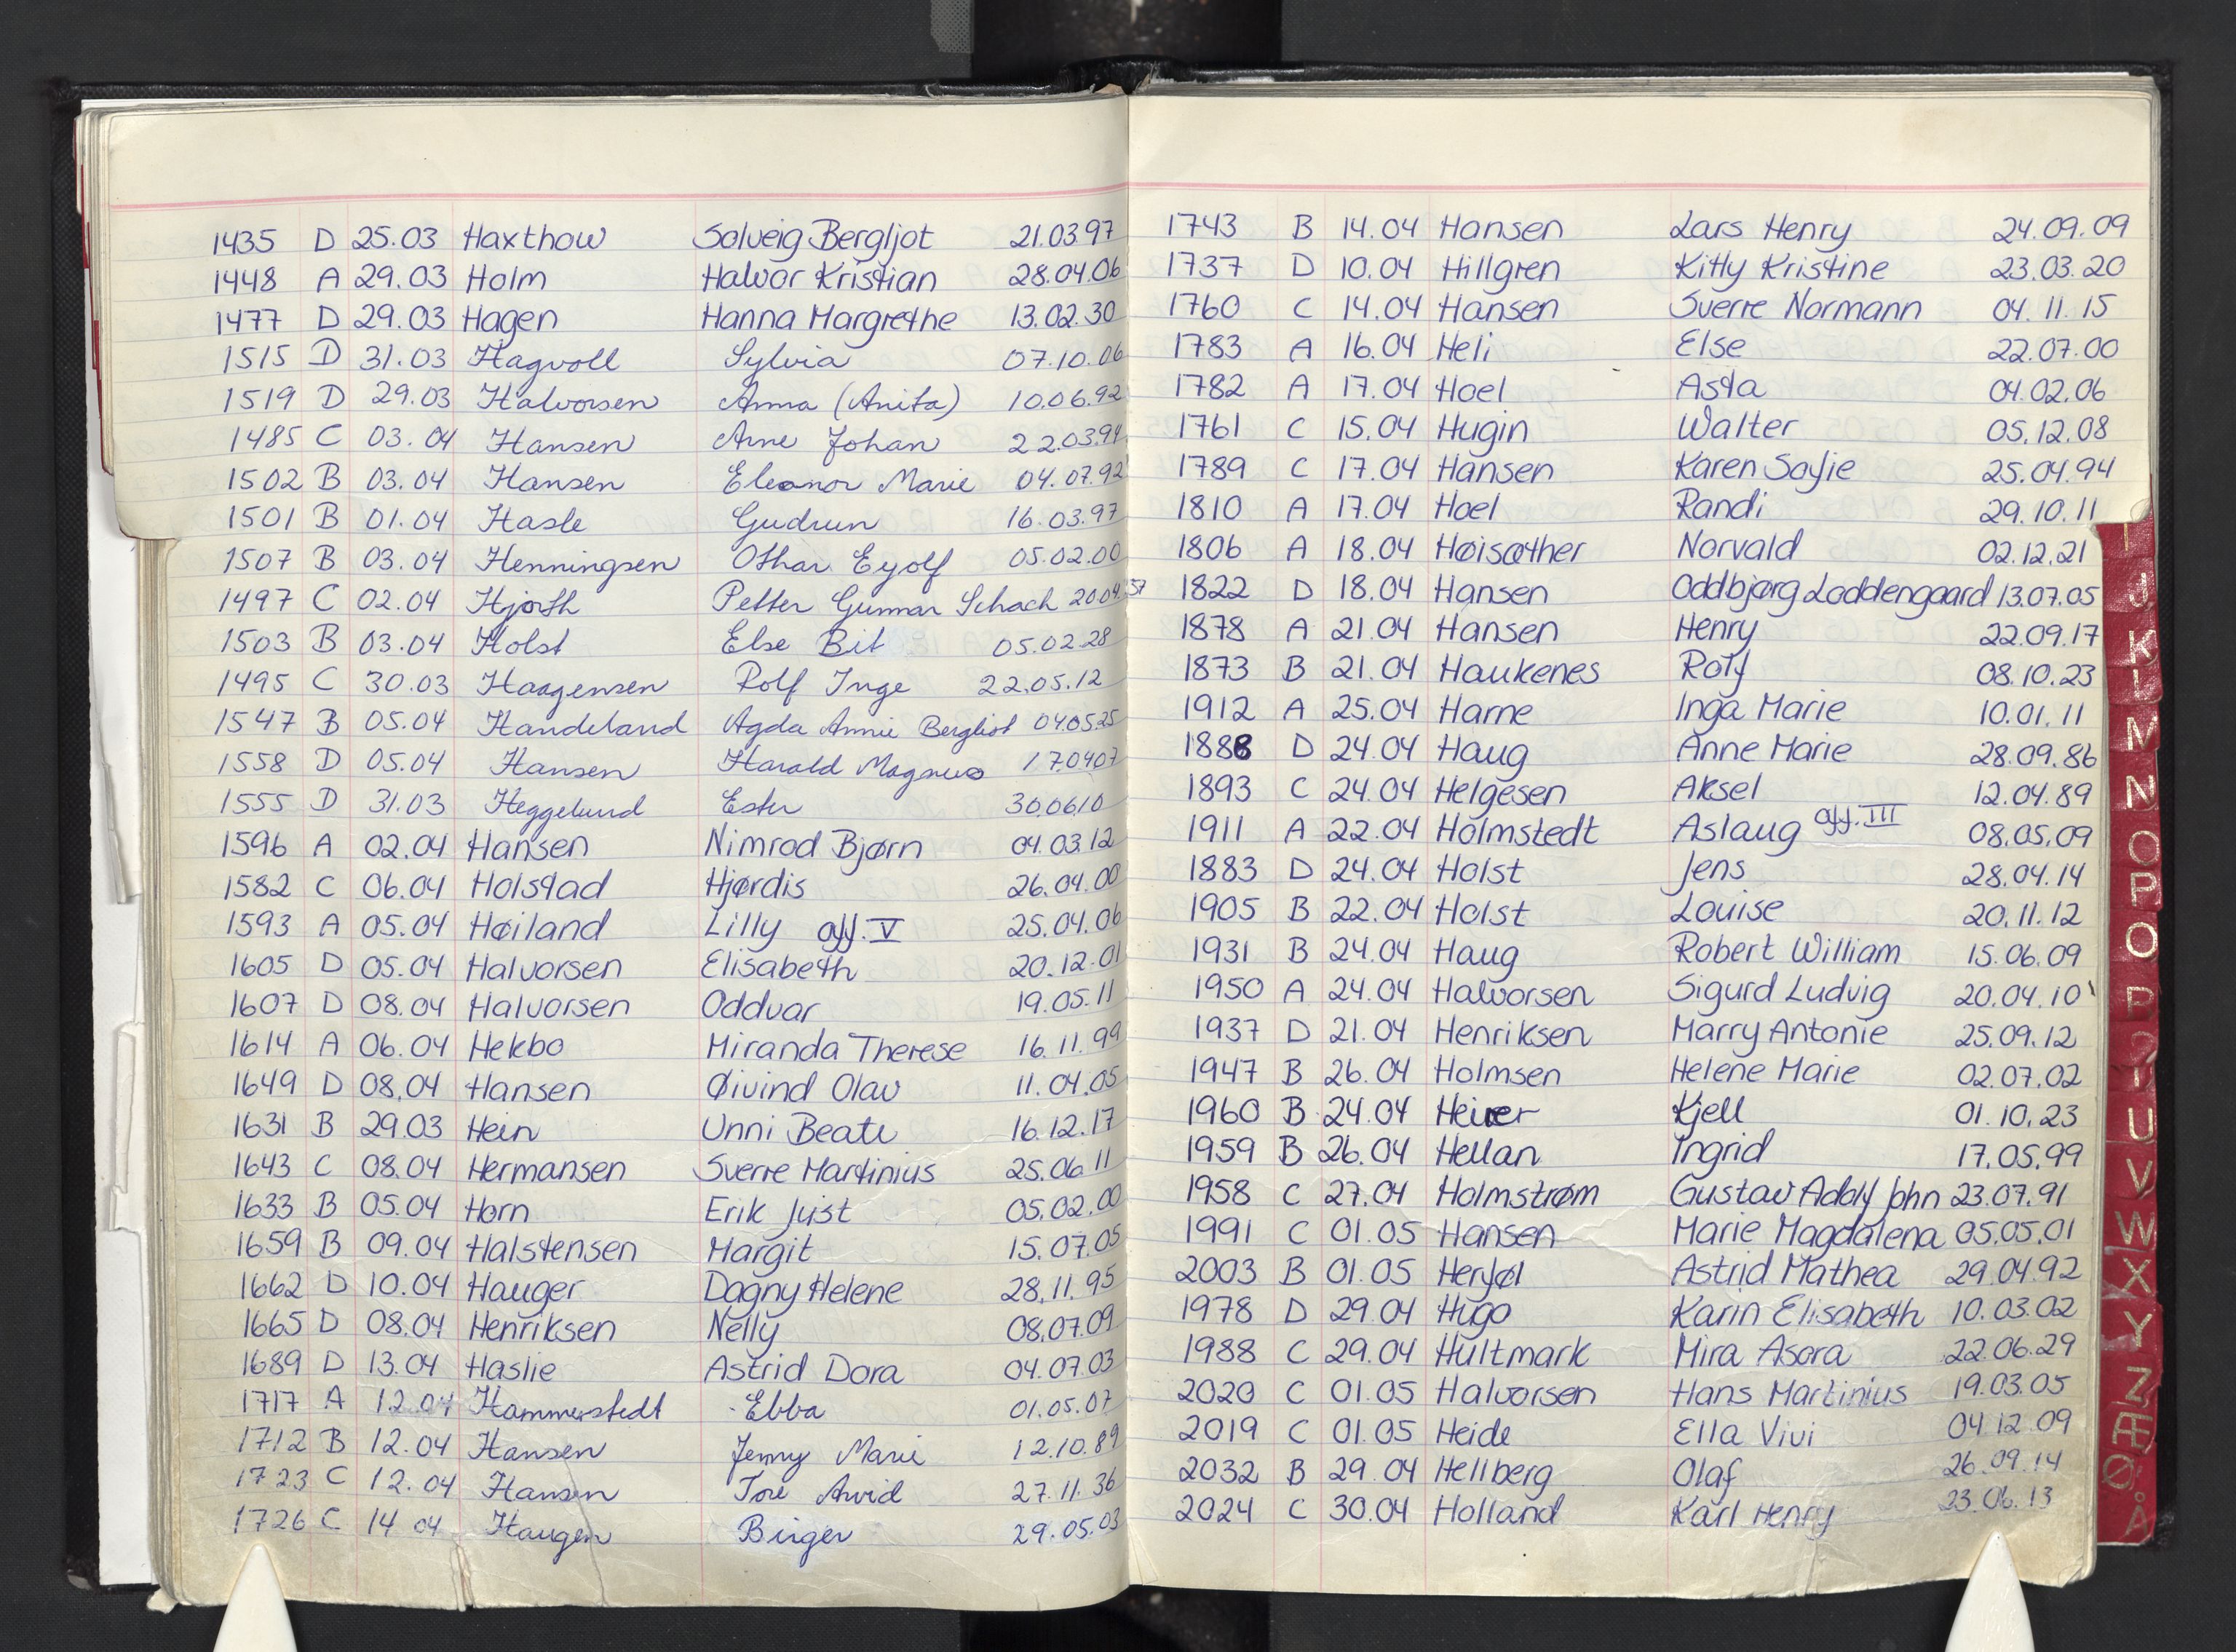 1435 D 25.03 Haxthow Solveig Bergljot 21.03.97
1448 A 29.03 Holm Halvor Kristian 28.04.06
1477 D 29.03 Hagen Hanna Margrethe 13.02.30
1515 D 31.03 Hagvoll Sylvia 07.10.06
1519 D 29.03 Halvorsen Anna (Anita) 10.06.92
1485 C 03.04 Hansen Arne Johan 22.03.94
1502 B 03.04 Hansen Eleonor Marie 04.07.92
1501 B 01.04 Hasle Gudrun 16.03.97
1507 B 03.04 Henningsen Othar Eyolf 05.02.00
1497 C 02.04 Hjorth Petter Gunnar Schach 20.04.57
1503 B 03.04 Holst Else Bit 05.02.28
1495 C 30.03 Haagensen Rolf Inge 22.05.12
1547 B 05.04 Handeland Agda Annie Bergliot 04.05.25
1558 D 05.04 Hansen Harald Magnus 17.04.07
1555 D 31.03 Heggelund Ester 30.06.10
1596 A 02.04 Hansen Nimrod Bjørn 04.03.12
1582 C 06.04 Holstad Hjørdis 26.04.00
1593 A 05.04 Høiland Lilly off. V 25.04.06
1605 D 05.04 Halvorsen Elisabeth 20.12.01
1607 D 08.04 Halvorsen Oddvar 19.05.11
1614 A 06.04 Hekbo Miranda Therese 16.11.99
1649 D 08.04 Hansen Øivind Olav 11.04.05
1631 B 29.03 Hein Unni Beate 16.12.17
1643 C 08.04 Hermansen Sverre Martinius 25.06.11
1633 B 05.04 Horn Erik Just 05.02.00
1659 B 09.04 Halstensen Margit 15.07.05
1662 D 10.04 Hauger Dagny Helene 28.11.95
1665 D 08.04 Henriksen Nelly 08.07.09
1689 D 13.04 Haslie Astrid Dora 04.07.03
1717 A 12.04 Hammerstedt Ebba 01.05.07
1712 B 12.04 Hansen Jenny Marie 12.10.89
1723 C 12.04 Hansen Tore Arvid 27.11.36
1726 C 14 04 Haugen Birger 29.05.03
1743 B 14.04 Hansen Lars Henry 24.09.09
1737 D 10.04 Hillgren Kitty Kristine 23.03.20
1760 C 14.04 Hansen Sverre Normann 04.11.15
1783 A 16.04 Heli Else 22.07.00
1782 A 17.04 Hoel Asta 04.02.06
1761 C 15.04 Hugin Walter 05.12.08
1789 C 17.04 Hansen Karen Sofie 25.04.94
1810 A 17.04 Hoel Randi 29.10.11
1806 A 18.04 Høisæther Norvald 02.12.21
1822 D 18.04 Hansen Oddbjørg Loddengaard 13.07.05
1878 A 21.04 Hansen Henry 22.09.17
1873 B 21.04 Haukenes Rolf 08.10.23
1912 A 25.04 Harne Inga Marie 10.01.11
1888 D 24.04 Haug Anne Marie 28.09.86
1893 C 24.04 Helgesen Aksel 12.04.89
1911 A 22.04 Holmstedt Aslaug off. III 08.05.09
1883 D 24.04 Holst Jens 28.04.14
1905 B 22.04 Holst Louise 20.11.12
1931 B 24.04 Haug Robert William 15.06.09
1950 A 24.04 Halvorsen Sigurd Ludvig 20.04.10
1937 D 21.04 Henriksen Marry Antonie 25.09.12
1947 B 26.04 Holmsen Helene Marie 02.07.02
1960 B 24.04 Kjell 01.10.23
1959 B 26.04 Hellan Ingrid 17.05.99
1958 C 27.04 Holmstrøm Gustav Adolf John 23.07.91
1991 C 01.05 Hansen Marie Magdalena 05.05.01
2003 B 01.05 Herføl Astrid Mathea 29.04.92
1978 D 29.04 Hugo Karin Elisabeth 10.03.02
1988 C 29.04 Hultmark Mira Asora 22.06.29
2020 C 01.05 Halvorsen Hans Martinius 19.03.05
2019 C 01.05 Heide Ella Vivi 04.12.09
2032 B 29.04 Hellberg Olaf 26.09.14
2024 C 30.04 Holland Karl Henry 23.06.13
I
J
K
L
M
N
O
P
O
P
U
V
W
X
Y
Z
Æ
Ø
Å